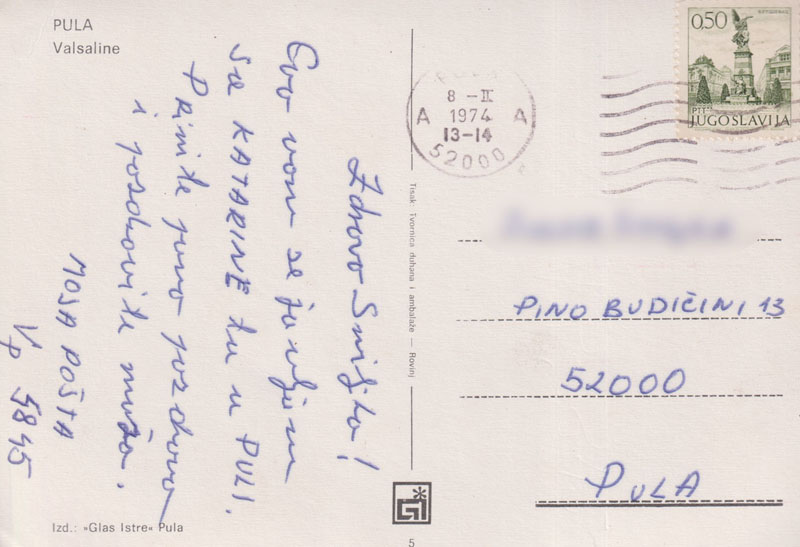 PULA
Valsaline
Zdravo Smiljka!
Evo vam se javljam
sa KATARINE tu u PULI.
Primite puno pozdrava
i pozdravite muža.
MOJA POŠTA
Vp 5845
Izd.: »Glas Istre« Pula
Tisak: Tvornica duhana i ambalaže — Rovinj
5
PULA
8 -II
A 1974 A
13-14
52000
0,50
PTT
JUGOSLAVIJA
PINO BUDIČINI 13
52000
PULA